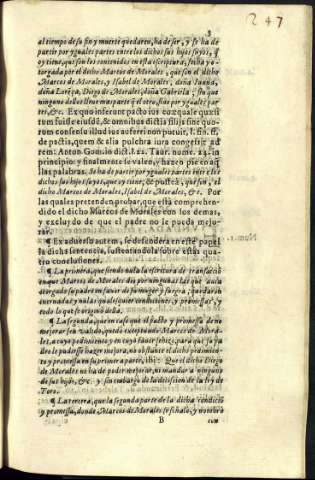 247
3
al tiempo de su fin y muerte quedaren, ha de ser, y se ha de
partir por yguales partes entre los dichos sus hijos suyos, q̃
oy tiene, que son los contenidos en esta escriptura, fecha y o-
torgada por el dicho Marcos de Morales, que son el dicho
Marcos de Morales, y Isabel de Morales, doña Iuana,
doña Lorẽça, Diego de Morales, doña Gabriela, sin que
ninguno dellos lleue mas parte q̃ el otro, sino por yguales par-
tes, &c. Ex quo infertur pacto
tum fuisse eiusdẽ, & omnibus dictis filijs sine quo-
rum consensu illud ius auferri non potuit, l. fin. ff.
de pactis, quem & alia pulchra iura congesit ad
rem: Anton. Gom. in dict. l. 22. Taur. num. 24. in
principio: y finalmente se valen, y hazen pie en aq̃-
llas palabras. Se ha de partir por yguales partes entre los
dichos sus hijos suyos, que oy tiene; & postea, que son, el
dicho Marcos de Morales, Isabel de Morales, &c. Por
las quales pretenden probar, que està comprehen-
dido el dicho Marcos de Morales con los demas,
y excluydo de que el padre no le pueda mejo-
rar.
Ex aduerso autem, se defenderà en este papel
la dicha sentencia, sustentandola sobre estas qua-
tro conclusiones.
Num. 1.
¶ La primera, que siendo nula la escritura de transaciõ
en que Marcos de Morales
otorgado su padre en fauor de su muger y suegra, quedaria
eneruada y nulas qualesquier condiciones, y promessas, y
todo lo que se origino della.
¶ La segunda, que en caso que el pacto y promessa de no
mejorar sea valido, quedò exceptuado Marcos de Mora-
les, a cuyo pedimiento y en cuyo fauor se hizo, para que ja-
llos le pudiesse hazer mejor, no obstante el dicho
y promessa en su primera parte, ibi: Que el dicho Diego
de Morales no ha de poder mejorar, ni mandar a ninguno
de sus hijos, &c. y sin embargo de la decission de la ley de
Toro.
¶ La tercera, que la segunda parte de la dicha condiciõ
y promessa, donde Marcos de Morales se señalò, y nombrò
B
con